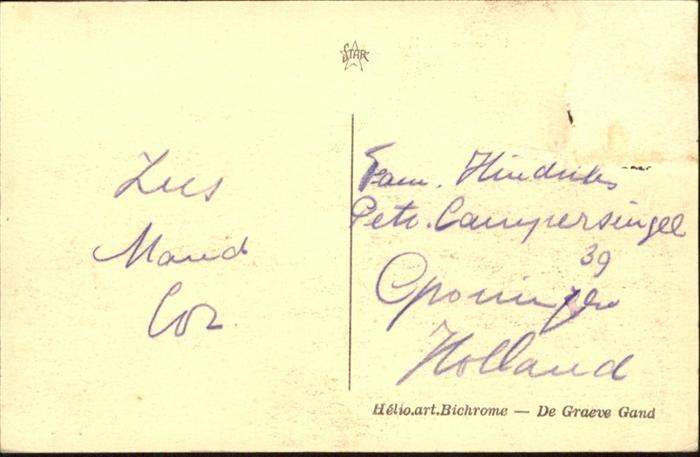 STAR
Zus
Maud
Cor
Fam. Hindriks
Petr. Campersingel
39
Groningen
Holland
Hélio.art.Bichrome — De Graeve Gand